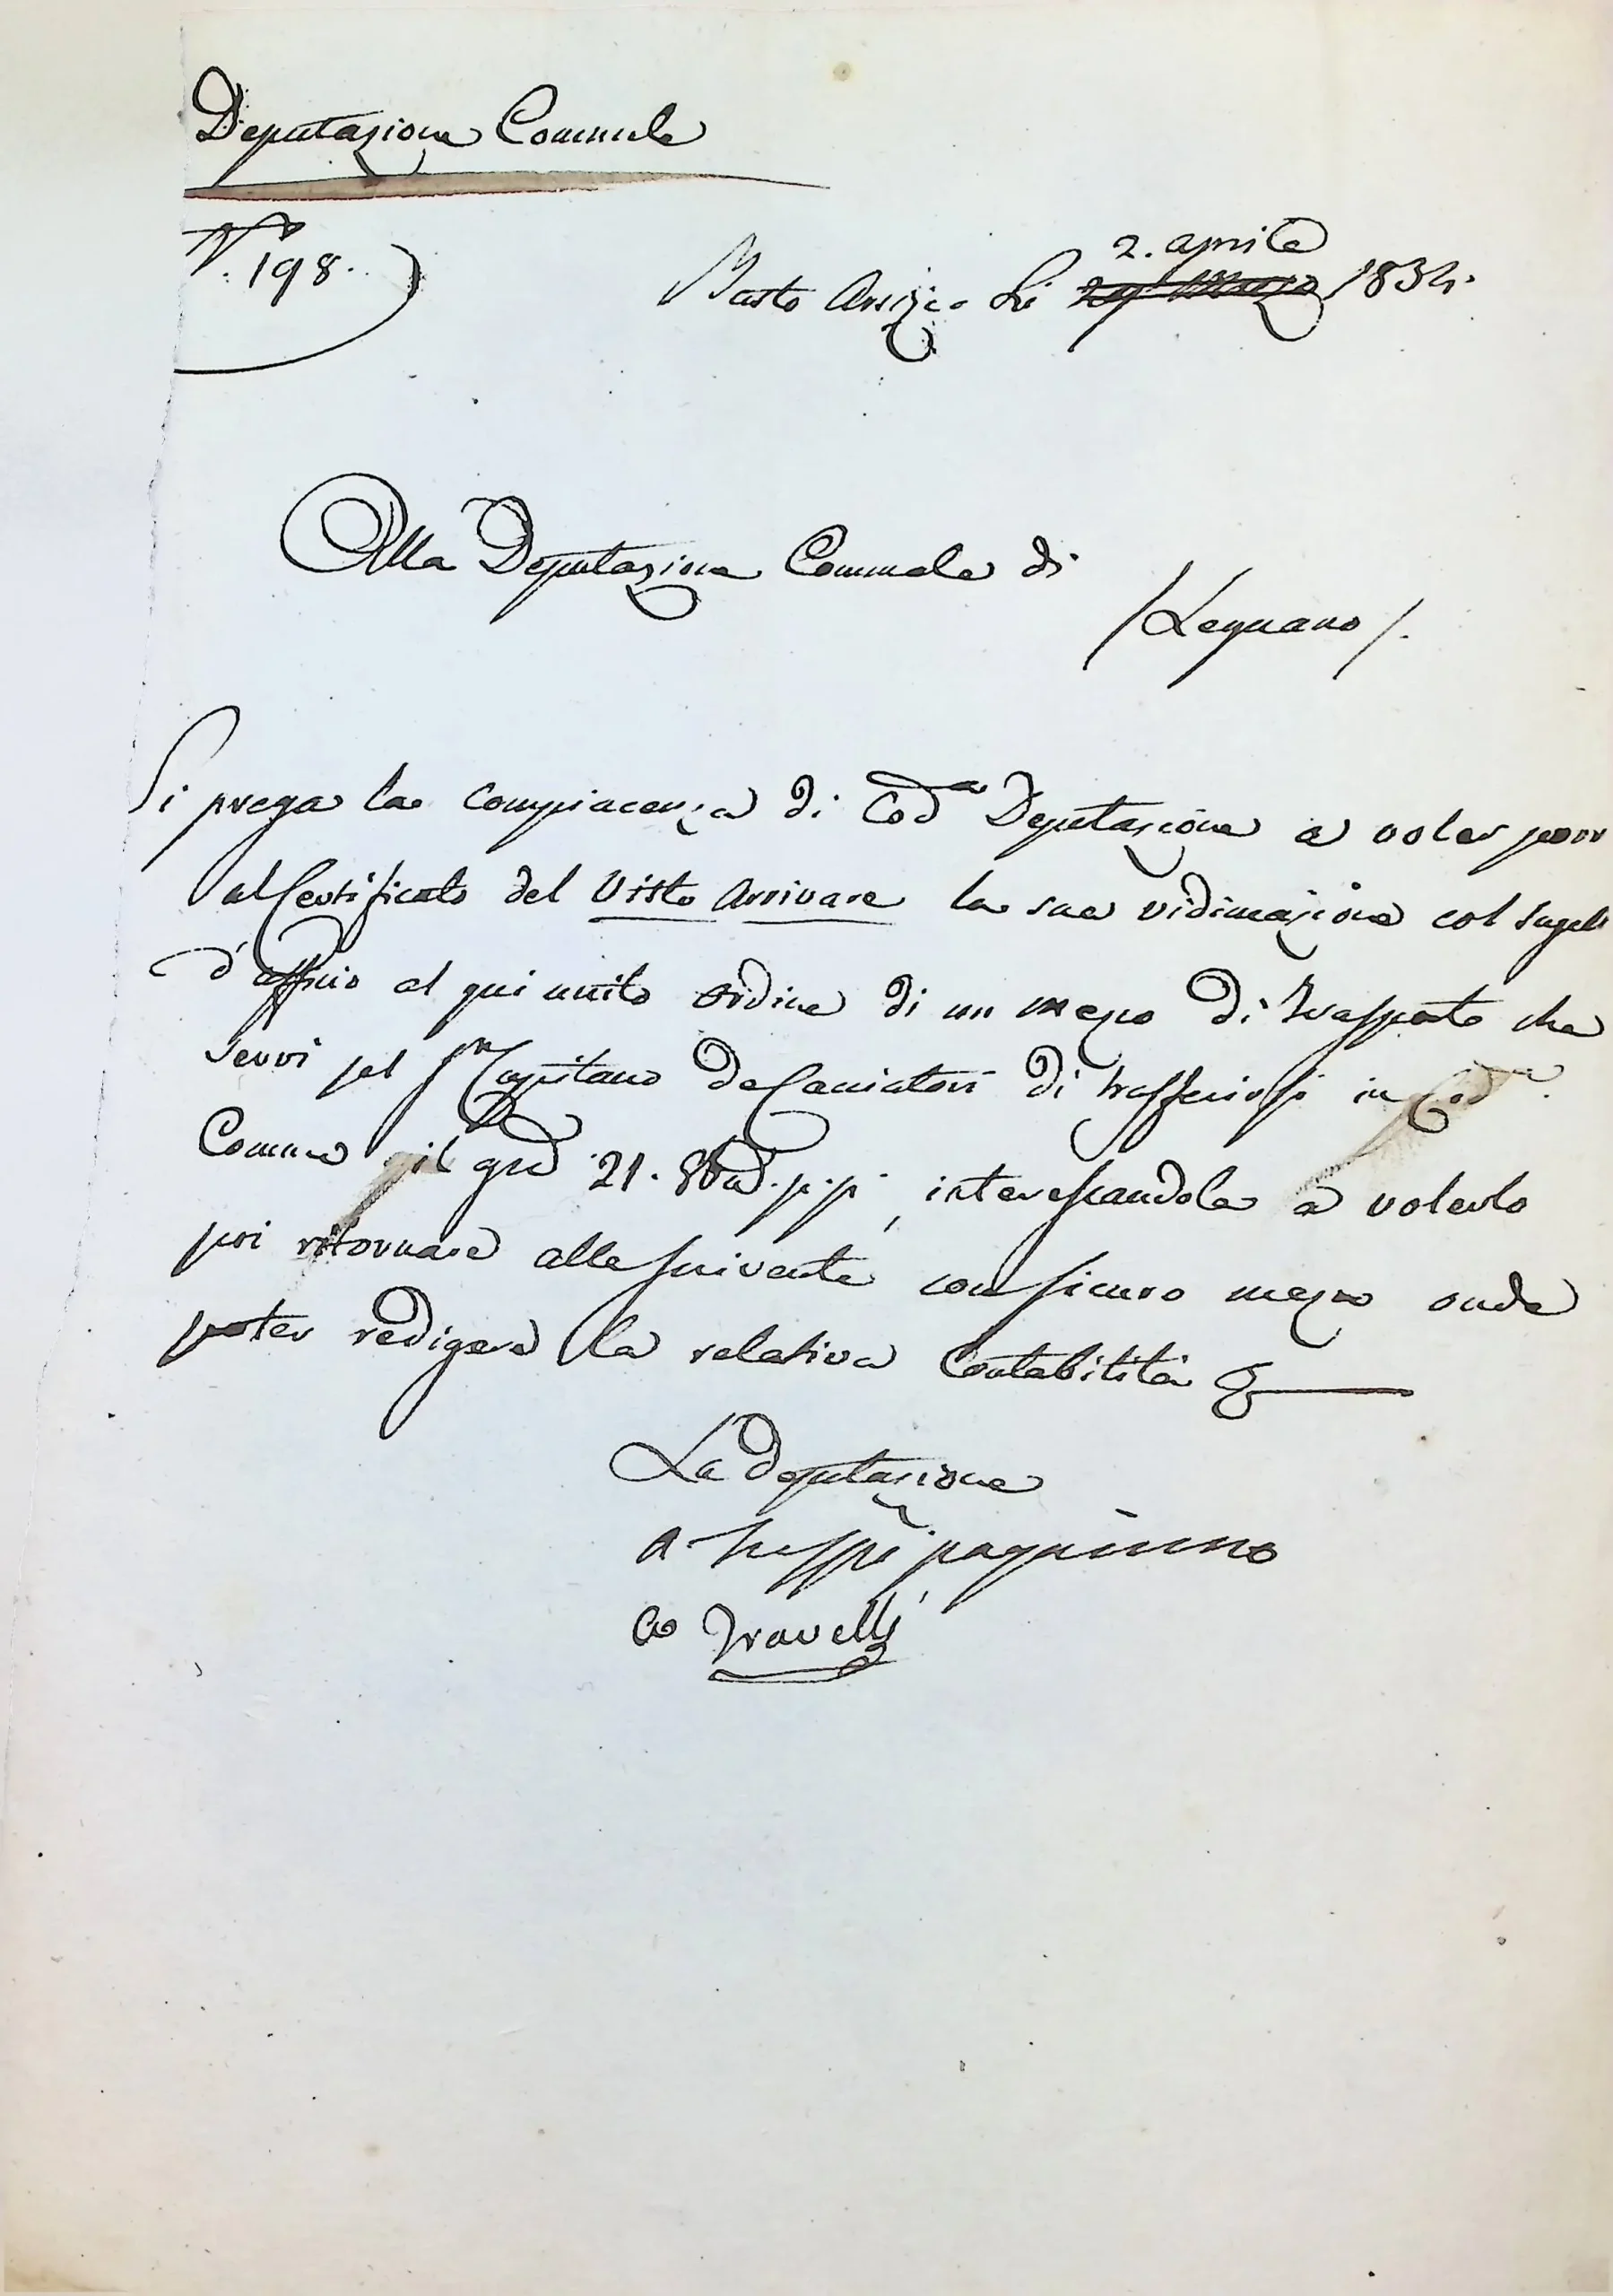 Deputazione Comunale
N.° 198.
2. aprile
Busto Arsizio Li 29 Marzo 1834.
Alla Deputazione Comunale di
/Legnano/.
Si prega la compiacenza di Cod.a Deputazione a voler porr
al Certificato del Visto Arrivare la sua vidimazione col sugel
d'Officio al qui unito ordine di un mezzo di trasporto che
servì pel Sr. Capitano de Cacciatori di trasferirsi in Cod.
Comune il gno 21. p.p., interessandola a volerlo
poi ritornare alla scrivente con sicuro mezzo onde
poter redigere la relativa Contabilità
La Deputazione